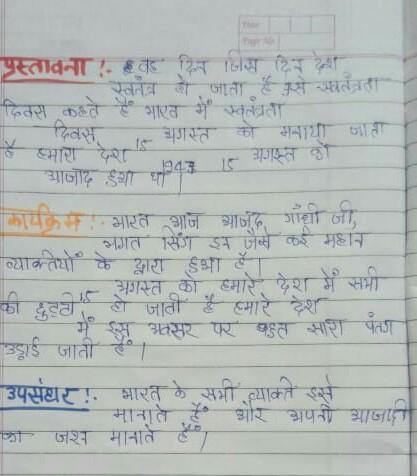 Date
Page No.
प्रस्तावना :- वह दिन जिस दिन देश
स्वतंत्र हो जाता है उसे स्वतंत्रता
दिवस कहते हैं भारत में स्वतंत्रता
दिवस 15 अगस्त को मनाया जाता
है हमारा देश 1947 15 अगस्त को
आजाद हुआ था।
कार्यक्रम :- भारत आज आजाद, गाँधी जी,
भगत सिंग इन जैसे कई महान
व्यक्तियों के द्वारा हुआ है।
15 अगस्त को हमारे देश में सभी
की छुट्टी हो जाती है हमारे देश
में इस अवसर पर बहुत सारा पतंग
उड़ाई जाती है।
उपसंहार :- भारत के सभी व्यक्ति इसे
मानाते हैं और अपनी आजादी
का जश्न मानाते हैं।